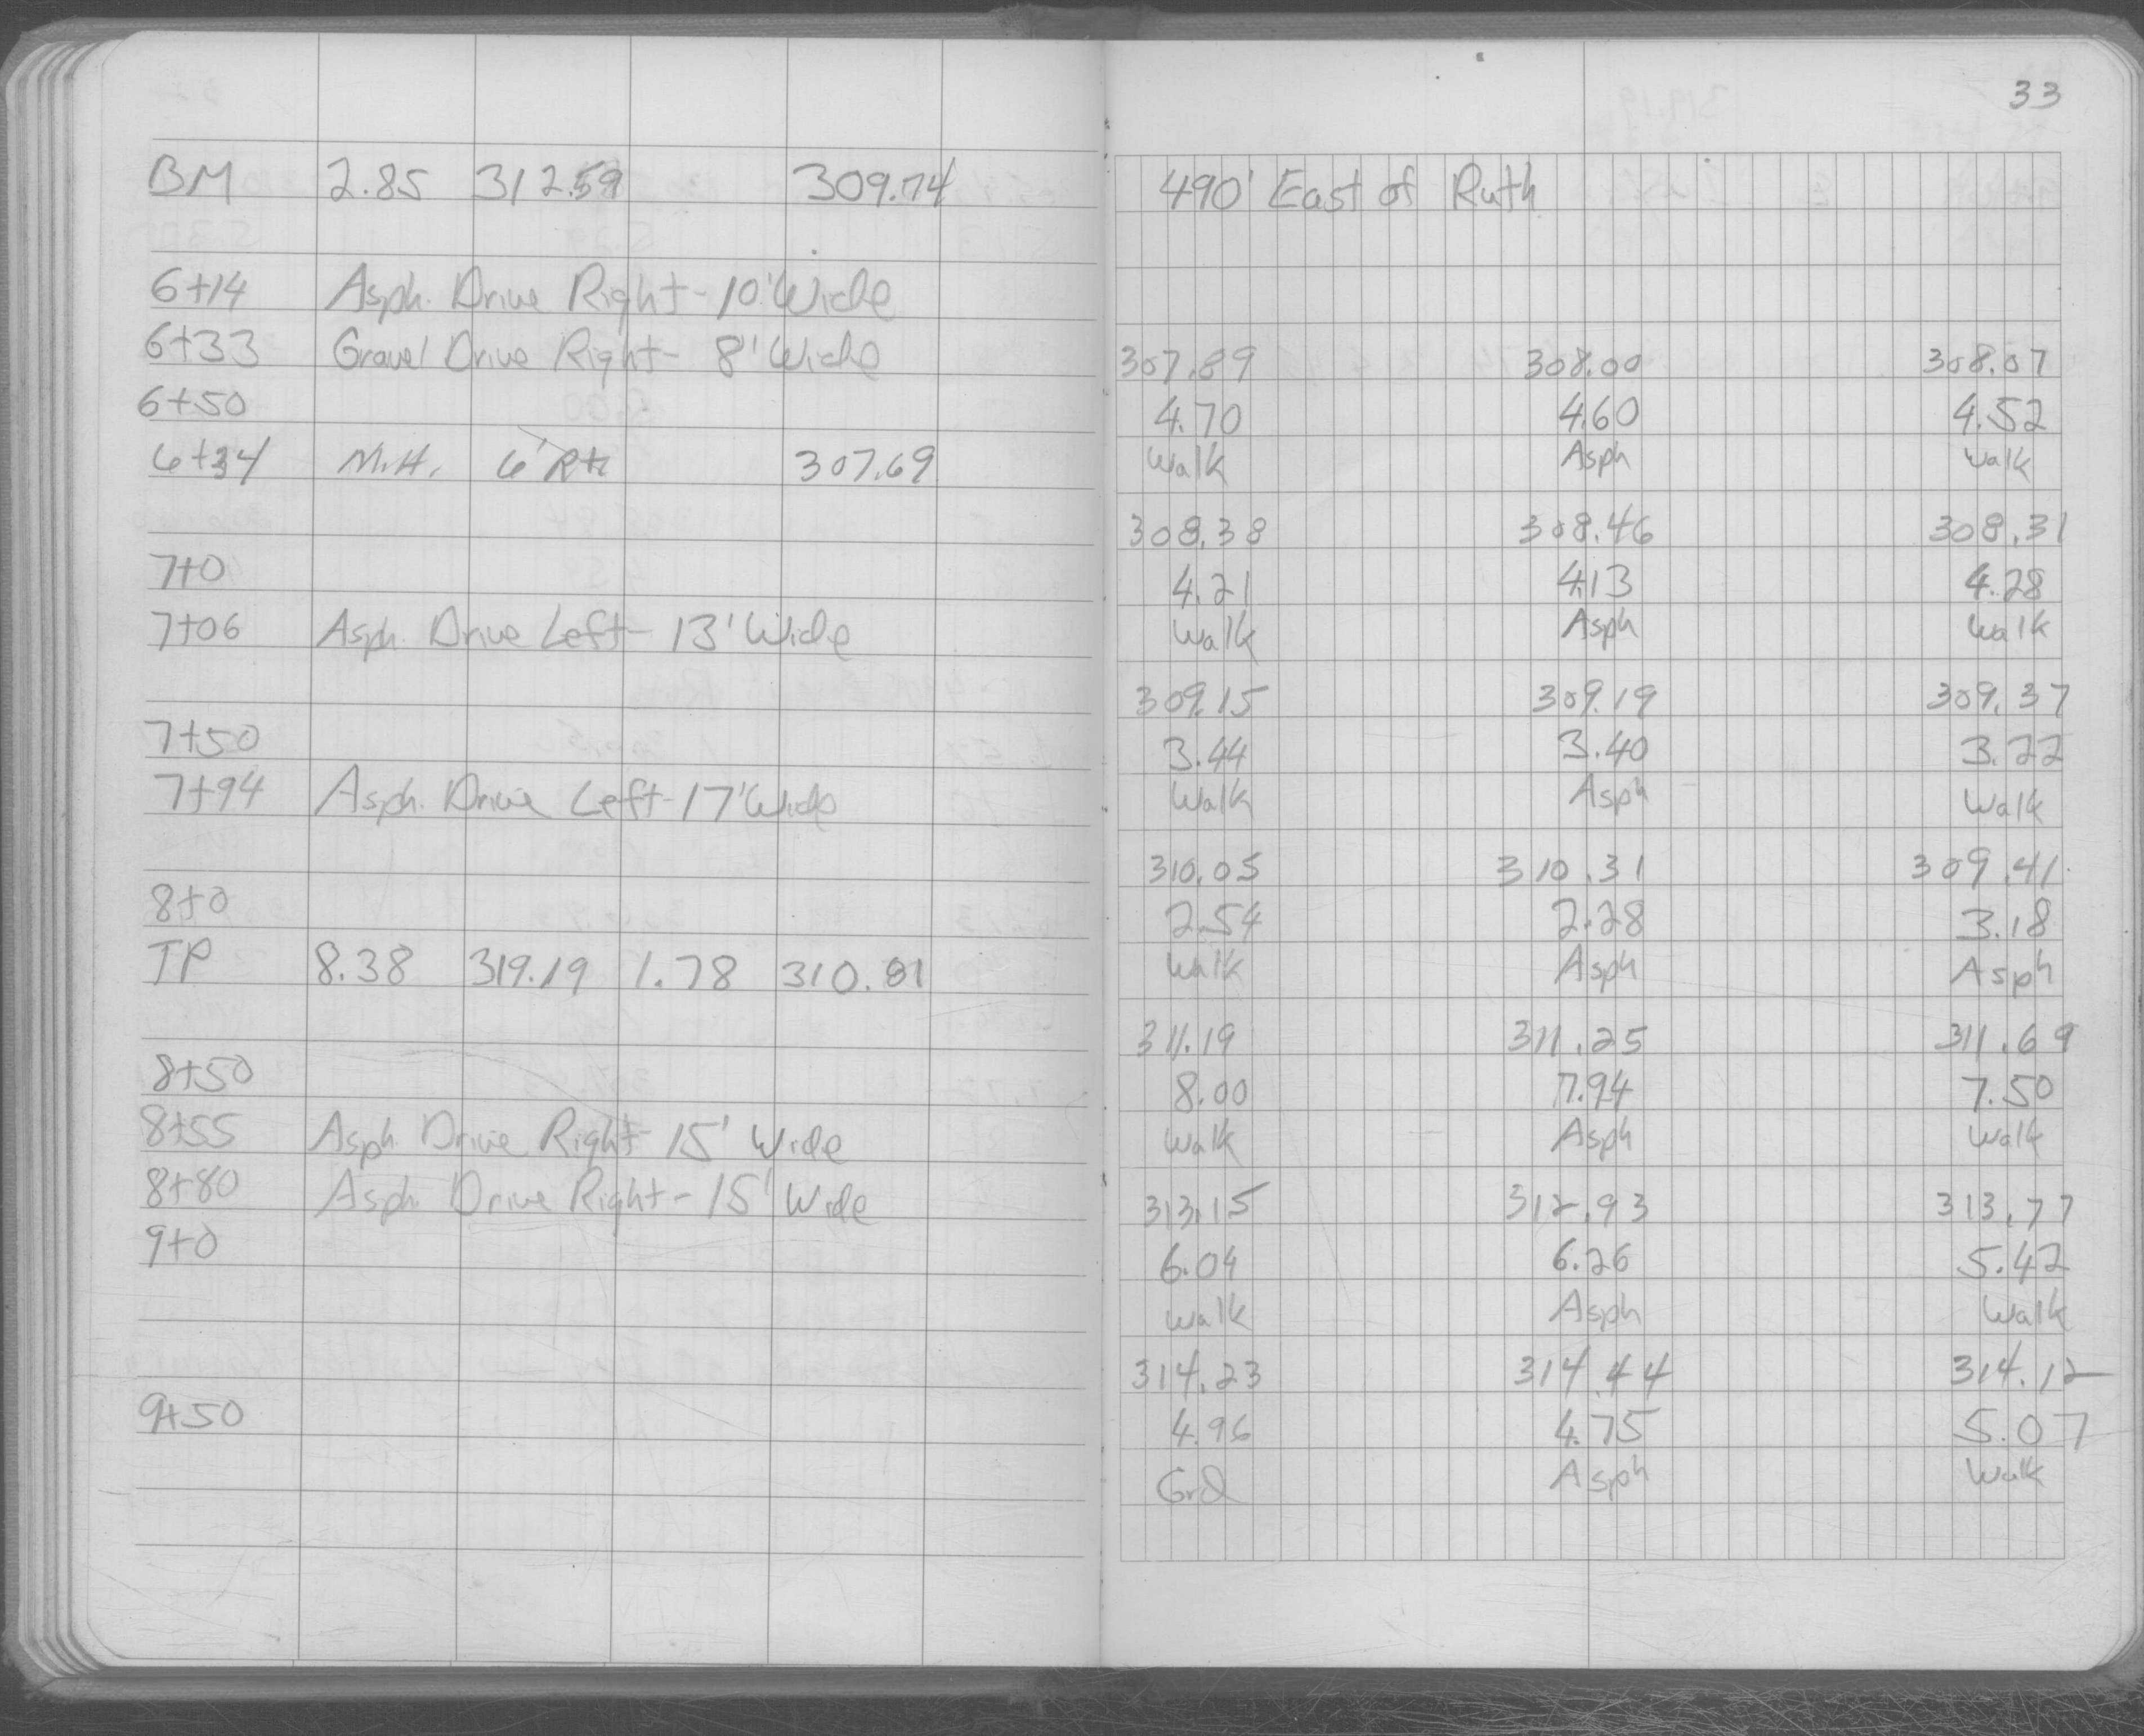 33
BM 2.85 312.59 309.74 490' East of Ruth
6+14 Asph. Drive Right - 10' Wide
6+33 Gravel Drive Right - 8' Wide 307.89 308.00 308.07
6+50 4.70 4.60 4.52
6+34 M.H. 6' Rt 307.69 Walk Asph Walk
308.38 308.46 308.31
7+0 4.21 4.13 4.28
7+06 Asph. Drive Left - 13' Wide Walk Asph Walk
309.15 309.19 309.37
7+50 3.44 3.40 3.22
7+94 Asph. Drive Left - 17' Wide Walk Asph Walk
310.05 310.31 309.41
8+0 2.54 2.28 3.18
TP 8.38 319.19 1.78 310.81 Walk Asph Asph
311.19 311.25 311.69
8+50 8.00 7.94 7.50
8+55 Asph Drive Right - 15' Wide Walk Asph Walk
8+80 Asph. Drive Right - 15' Wide 313.15 312.93 313.77
9+0 6.04 6.26 5.42
Walk Asph Walk
314.23 314.44 314.12
9+50 4.96 4.75 5.07
Grd Asph Walk